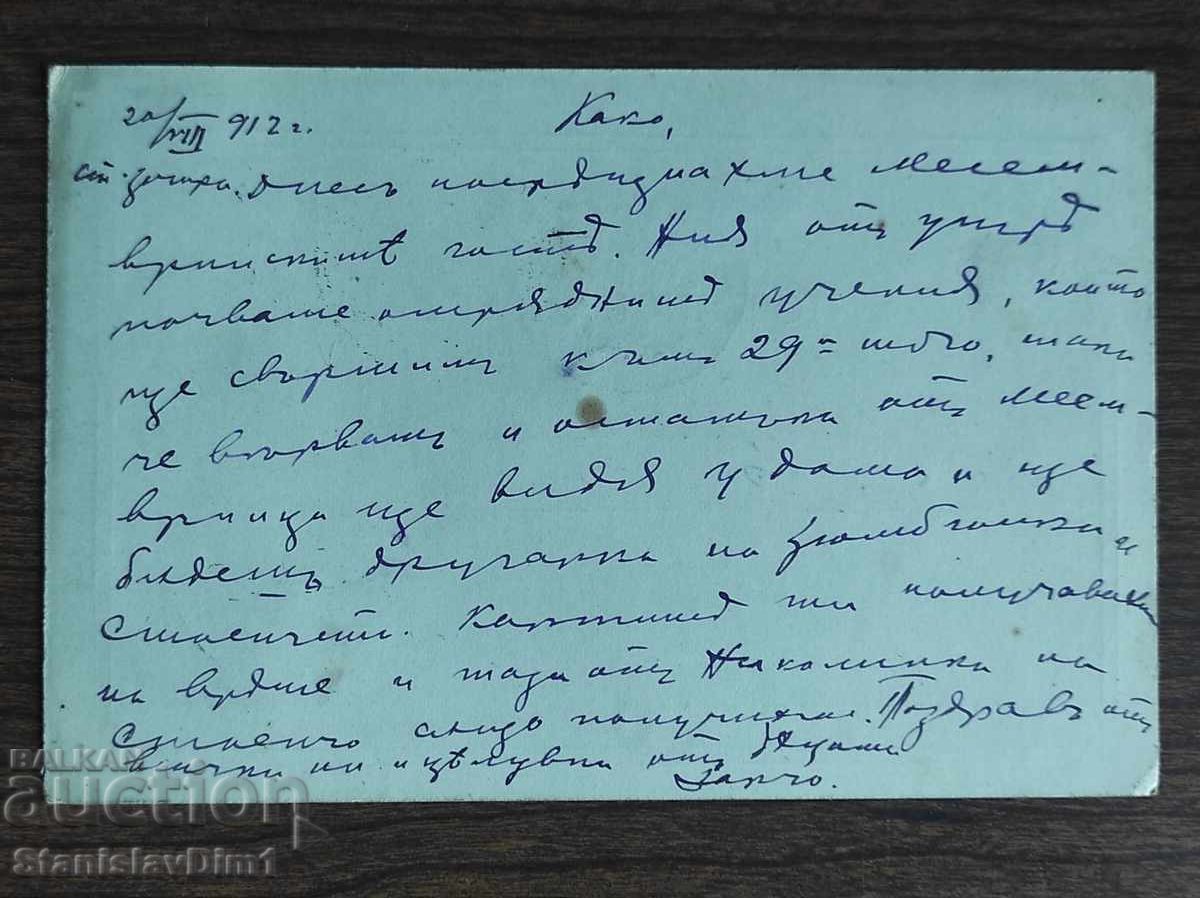 20/VIII 912 г. Како,
ст. Загора. Днесъ посрѣднахме Месем-
врийскитѣ гости. Ния отъ утрѣ
почваме отряднитѣ учения, които
ще свършимъ къмъ 29-и того, тъй
че вървамъ и остатъка отъ Месем-
врийци ще видя у дома и ще
бъдемъ другарки на и
Стоенчети. Картитѣ ти получавахме
на врѣме и тази отъ Николинка на
Стоенчо също получихме. Поздравъ отъ
всички ни и цѣлувки отъ децата
Занчо.
БАЛКАН
auction
StanislavDim1